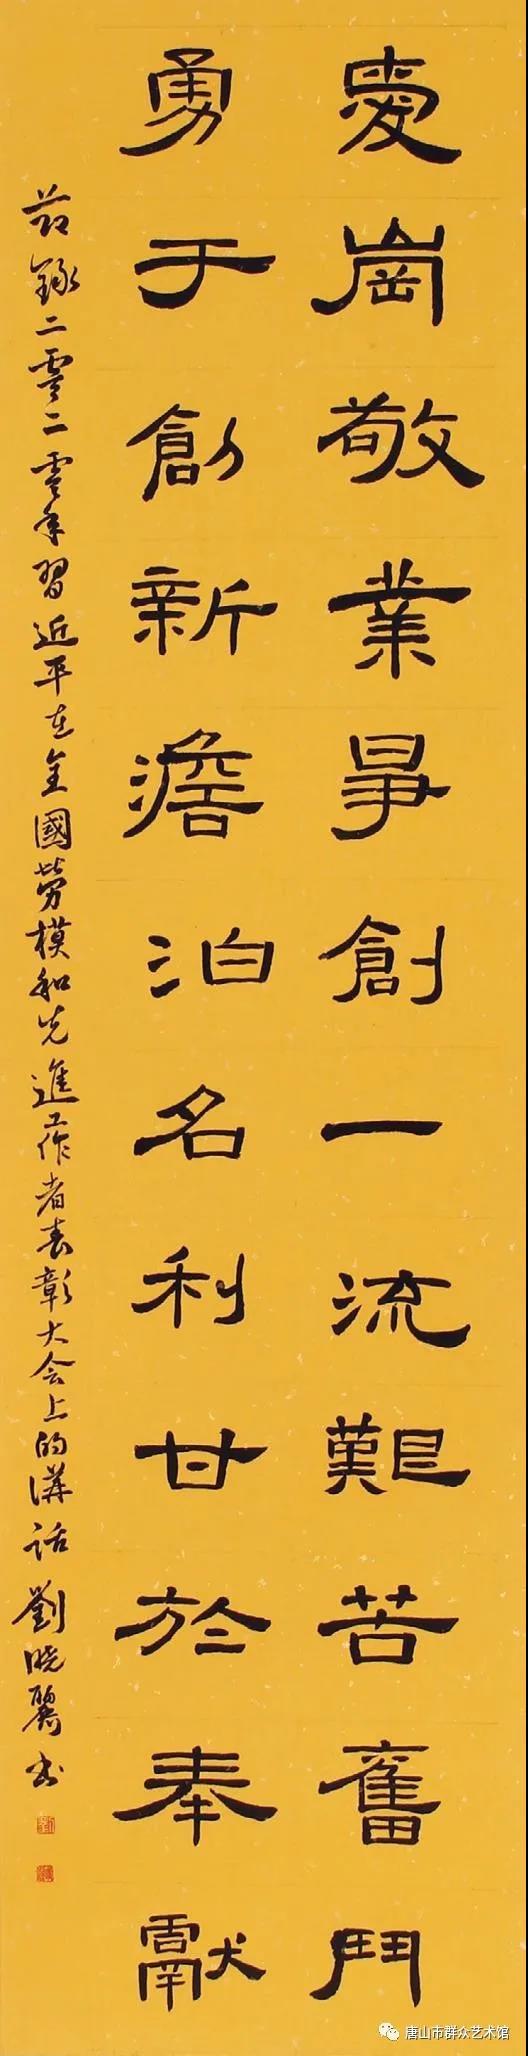 愛崗敬業爭創一流艱苦奮鬥
勇于創新澹泊名利甘於奉獻
节錄二零二零年習近平在全國勞模和先進工作者表彰大会上的講話 劉曉麗书
唐山市群众艺术馆